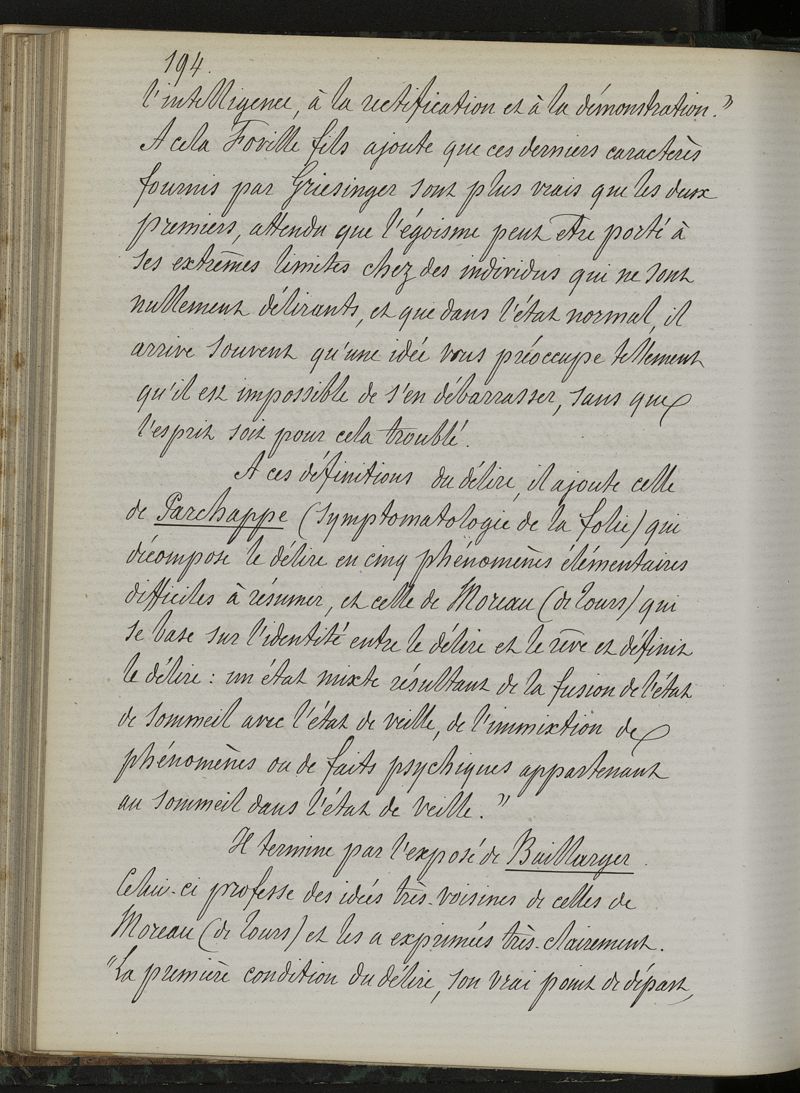 194.
l'intelligence, à la rectification et à la démonstration."
A cela Foville fils ajoute que ces derniers caractères
fournis par Griesinger sont plus vrais que les deux
premiers, attendu que l'égoisme peut etre porté à
ses extrêmes limites chez des individus qui ne sont
nullement délirants, et que dans l'état normal, il
arrive souvent qu'une idée vous préoccupe tellement
qu'il est impossible de s'en débarrasser, sans que
l'esprit soit pour cela troublé.
A ces définitions du délire, il ajoute celle
de Parchappe (Symptomatologie de la folie) qui
décompose le délire en cinq phénomènes élémentaires
difficiles à résumer, et celle de Moreau (de Tours) qui
se base sur l'identité entre le délire et le rêve et définit
le délire : un état mixte résultant de la fusion de l'état
de sommeil avec l'état de veille, de l'immixtion de
phénomènes ou de faits psychiques appartenant
au sommeil dans l'état de veille."
Il termine par l'exposé de Baillarger
Celui-ci professe des idées très-voisines de celles de
Moreau (de Tours) et les a exprimées très-clairement.
"La première condition du délire, son vrai point de départ,